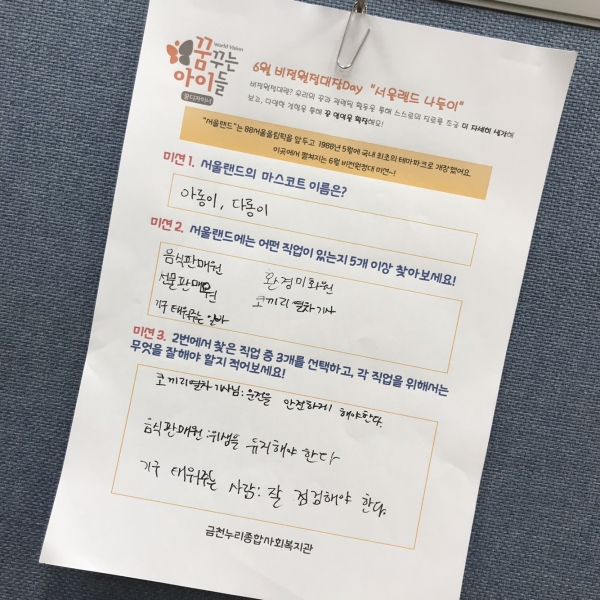 World Vision
꿈꾸는
아이들
꿈디자이너
6월 비전원정대장Day "서울랜드 나들이"
비전원정대란? 우리의 꿈과 관련된 활동을 통해 스스로의 진로를 조금 더 자세히 새겨
보고, 다양한 개척을 통해 꿈 여여를 확장해요!
"서울랜드"는 88서울올림픽을 앞두고 1988년 5월에 국내 최초의 테마파크로 개장했어요.
이곳에서 펼쳐지는 6월 비전원정대 미션~!
미션 1. 서울랜드의 마스코트 이름은?
아롱이, 다롱이
미션 2. 서울랜드에는 어떤 직업이 있는지 5개 이상 찾아보세요!
음식판매원 환경미화원
선물판매원 코끼리 열차기사
기구 태워주는 알바
미션 3. 2번에서 찾은 직업 중 3개를 선택하고, 각 직업을 위해서는
무엇을 잘해야 할지 적어보세요!
코끼리열차 기사님: 운전을 안전하게 해야한다.
음식판매원: 위생을 유지해야 한다
기구 태워주는 사람: 잘 점검해야 한다.
금천누리종합사회복지관